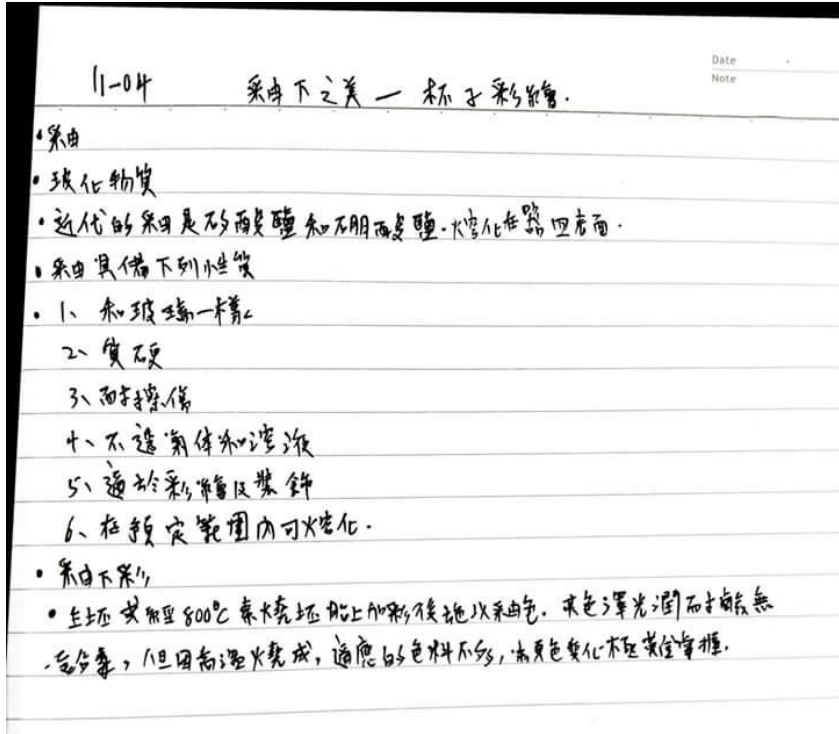 Date
Note
11-04 釉下之美 — 杯子彩繪.
•釉
•玻化物質
•近代的釉是矽酸鹽和硼酸鹽.熔化在器皿表面.
•釉具備下列性質
•1、和玻璃一樣
2、質硬
3、耐擦傷
4、不透氣体和溶液
5、適於彩繪及裝飾
6、在預定範圍內可熔化.
•釉下彩
•生坯或經800°C素燒坯胎上加彩後施以釉色.其色澤光潤耐酸無
毒,但因高溫燒成,適應的色料不多,東色變化極難掌握.